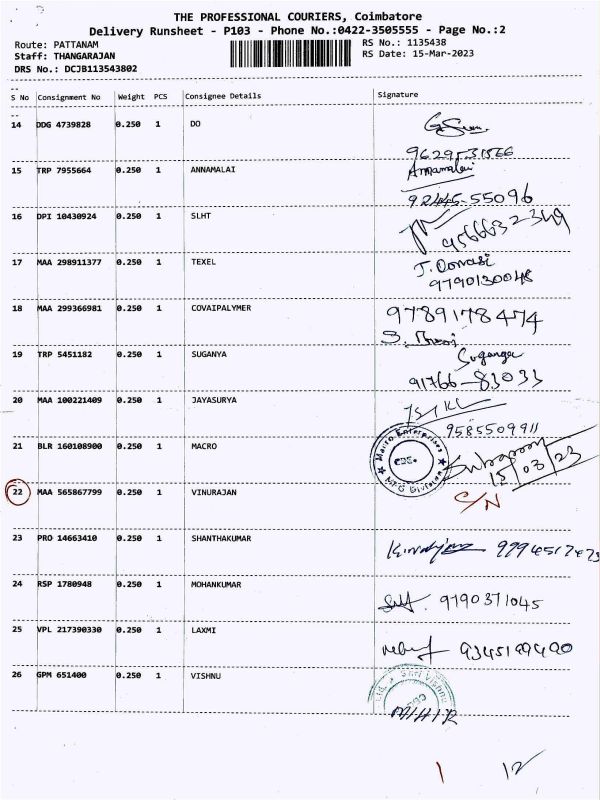 THE PROFESSIONAL COURIERS, Coimbatore
Delivery Runsheet - P103 - Phone No.:0422-3505555 - Page No.:2
Route: PATTANAM RS No.: 1135438
Staff: THANGARAJAN RS Date: 15-Mar-2023
DRS No.: DCJB113543802
S No Consignment No Weight PCS Consignee Details Signature
14 DDG 4739828 0.250 1 DO
9629531566
15 TRP 7955664 0.250 1 ANNAMALAI Annamalai
92445-55096
16 DPI 10430924 0.250 1 SLHT
9566632349
17 MAA 298911377 0.250 1 TEXEL
9790130048
18 MAA 299366981 0.250 1 COVAIPALYMER 9789178474
19 TRP 5451182 0.250 1 SUGANYA Suganya
91766-83033
20 MAA 100221409 0.250 1 JAYASURYA
9585509911
21 BLR 160108900 0.250 1 MACRO Macro Enterprises CBE. MFG Division
15/03/23
22 MAA 565867799 0.250 1 VINURAJAN C/N
23 PRO 14663410 0.250 1 SHANTHAKUMAR
24 RSP 1780948 0.250 1 MOHANKUMAR 9790371045
25 VPL 217390330 0.250 1 LAXMI 9345199490
26 GPM 651400 0.250 1 VISHNU
1 12